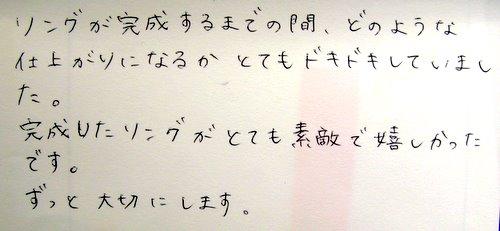 リングが完成するまでの間、どのような
仕上がりになるか とてもドキドキしていまし
た。
完成したリングがとても素敵で嬉しかった
です。
ずっと大切にします。